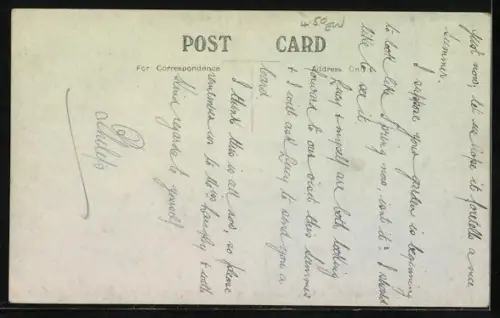 4.50
POST CARD
For Correspondence
Address Only
just now, let us hope it foretells a nice
summer.
I suppose your garden is beginning
to look like Spring now, isn't it? I should
like to see it.
Lucy & myself are both looking
forward to our visit this summer
& I will ask Lucy to send you a
card
I think this is all now, so please
remember us to Miss & with
kind regards to yourself